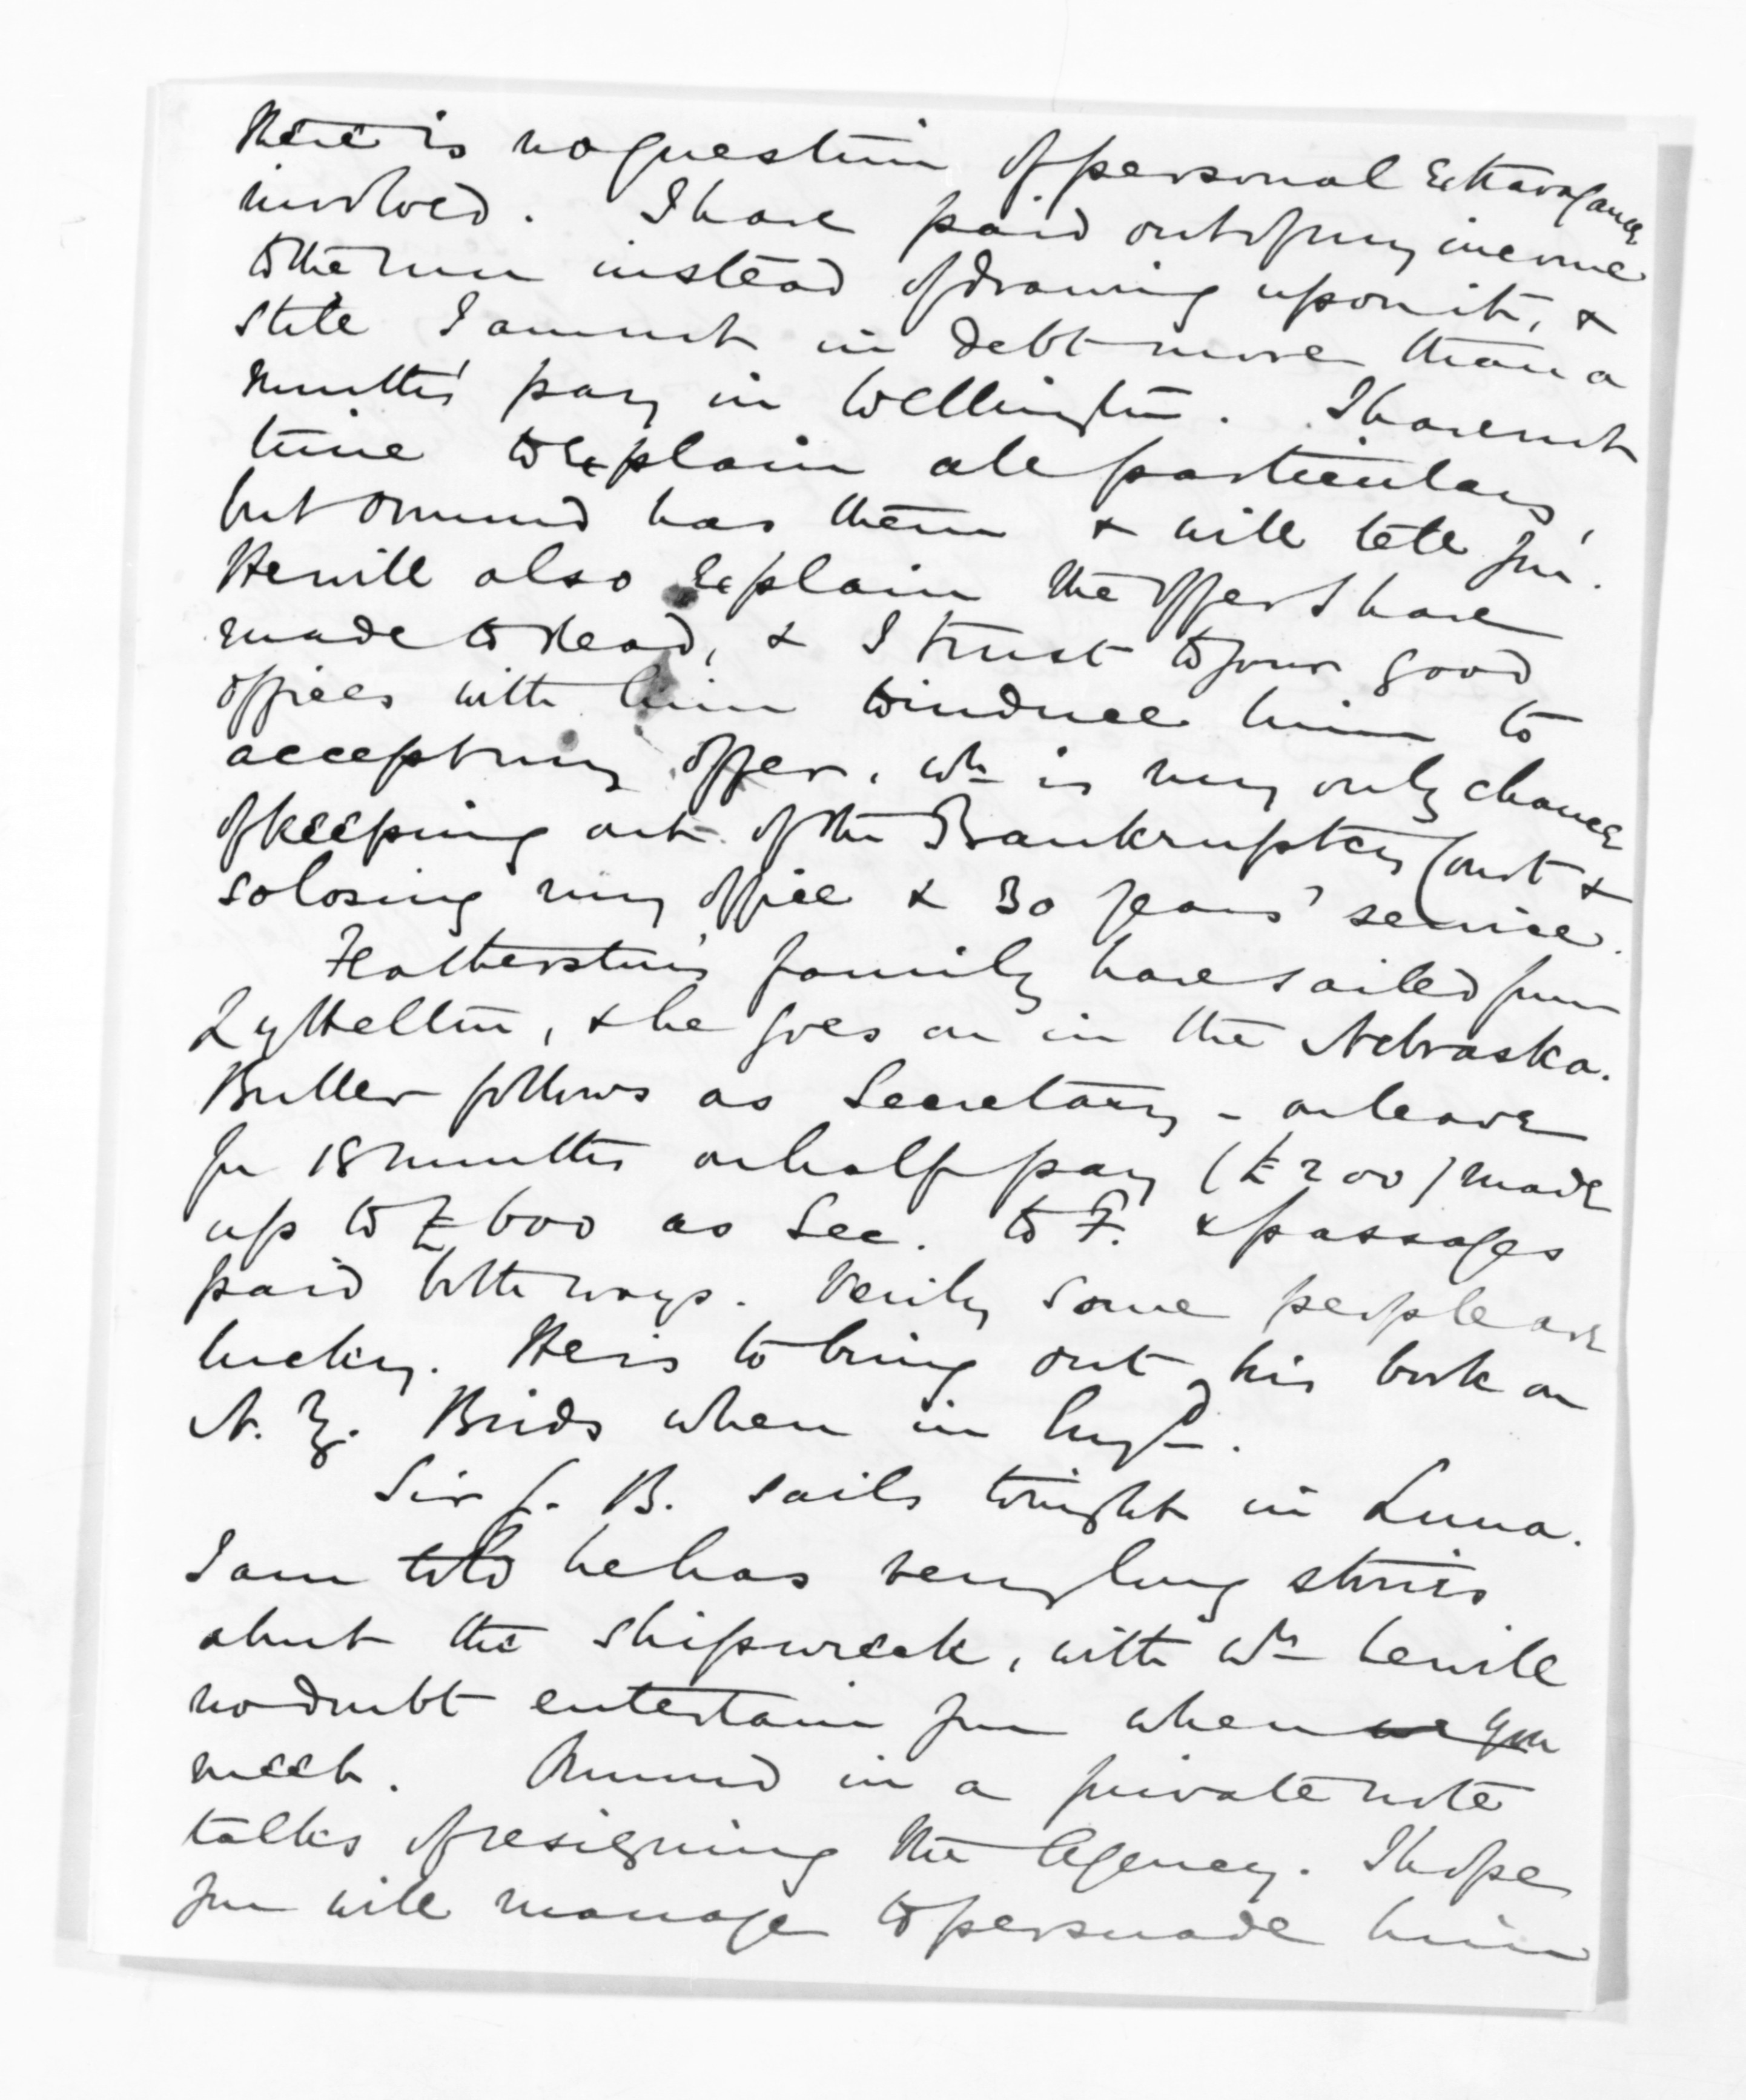 there is no question of personal extravagance
involved. I have paid out of my income
to the run instead of drawing upon it, &
still I am not in debt more than a
months' pay in Wellington. I have not
time to explain all particulars,
but Ormond has them & will tell you.
He will also explain the offer I have
made to Read, & I trust to your good
offices with him to induce him to
accept my offer, wh is my only chance
of keeping out of the Bankruptcy Court &
so losing my office & 30 years' service.
Featherston's family have sailed from
Lyttelton, & he goes on in the Nebraska.
Buller follows as Secretary - on leave
for 18 months on half pay (£200) made
up to £600 as Sec. to F. & passages
paid both ways. Verily some people are
lucky. He is to bring out his book on
N. Z. Birds when in Engd.
Sir G. B. sails tonight in Luna.
I am told he has very long stories
about the shipwreck, with wh he will
no doubt entertain you when we you
meet. Ormond in a private note
talks of resigning the Agency. I hope
you will manage to persuade him